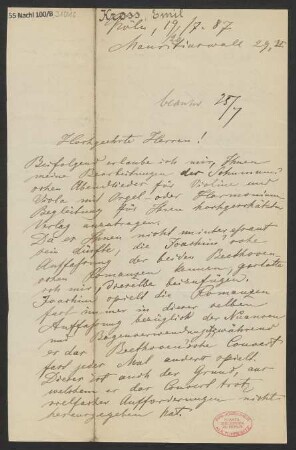 55 Nachl 100/B
Kross, Emil
Köln, 19/7. 87
Mauritiuswall
25/7
Hochgeehrte Herren!
Beifolgend erlaube ich mir, Ihnen
meine Bearbeitungen der Schumann'
schen Abendlieder für Violine und
Viola mit Orgel- oder Harmonium
Begleitung für Ihren hochgeschätzten
Verlag anzutragen.
Da es Ihnen nicht uninteressant
sein dürfte, die Joachim'sche
Auffassung der beiden Beethoven'
schen Romanzen kennen, gestatte
ich mir, dieselbe beizufügen.
Joachim spielt die Romanzen
fast immer in dieser selben
Auffassung bezüglich der Nuancen
und Bogenverwendung, während
er das Beethoven'sche Concert
fast jedes Mal anders spielt.
Dieses ist auch der Grund, aus
welchem er das Concert trotz
vielfacher Aufforderungen nicht
herausgegeben hat.